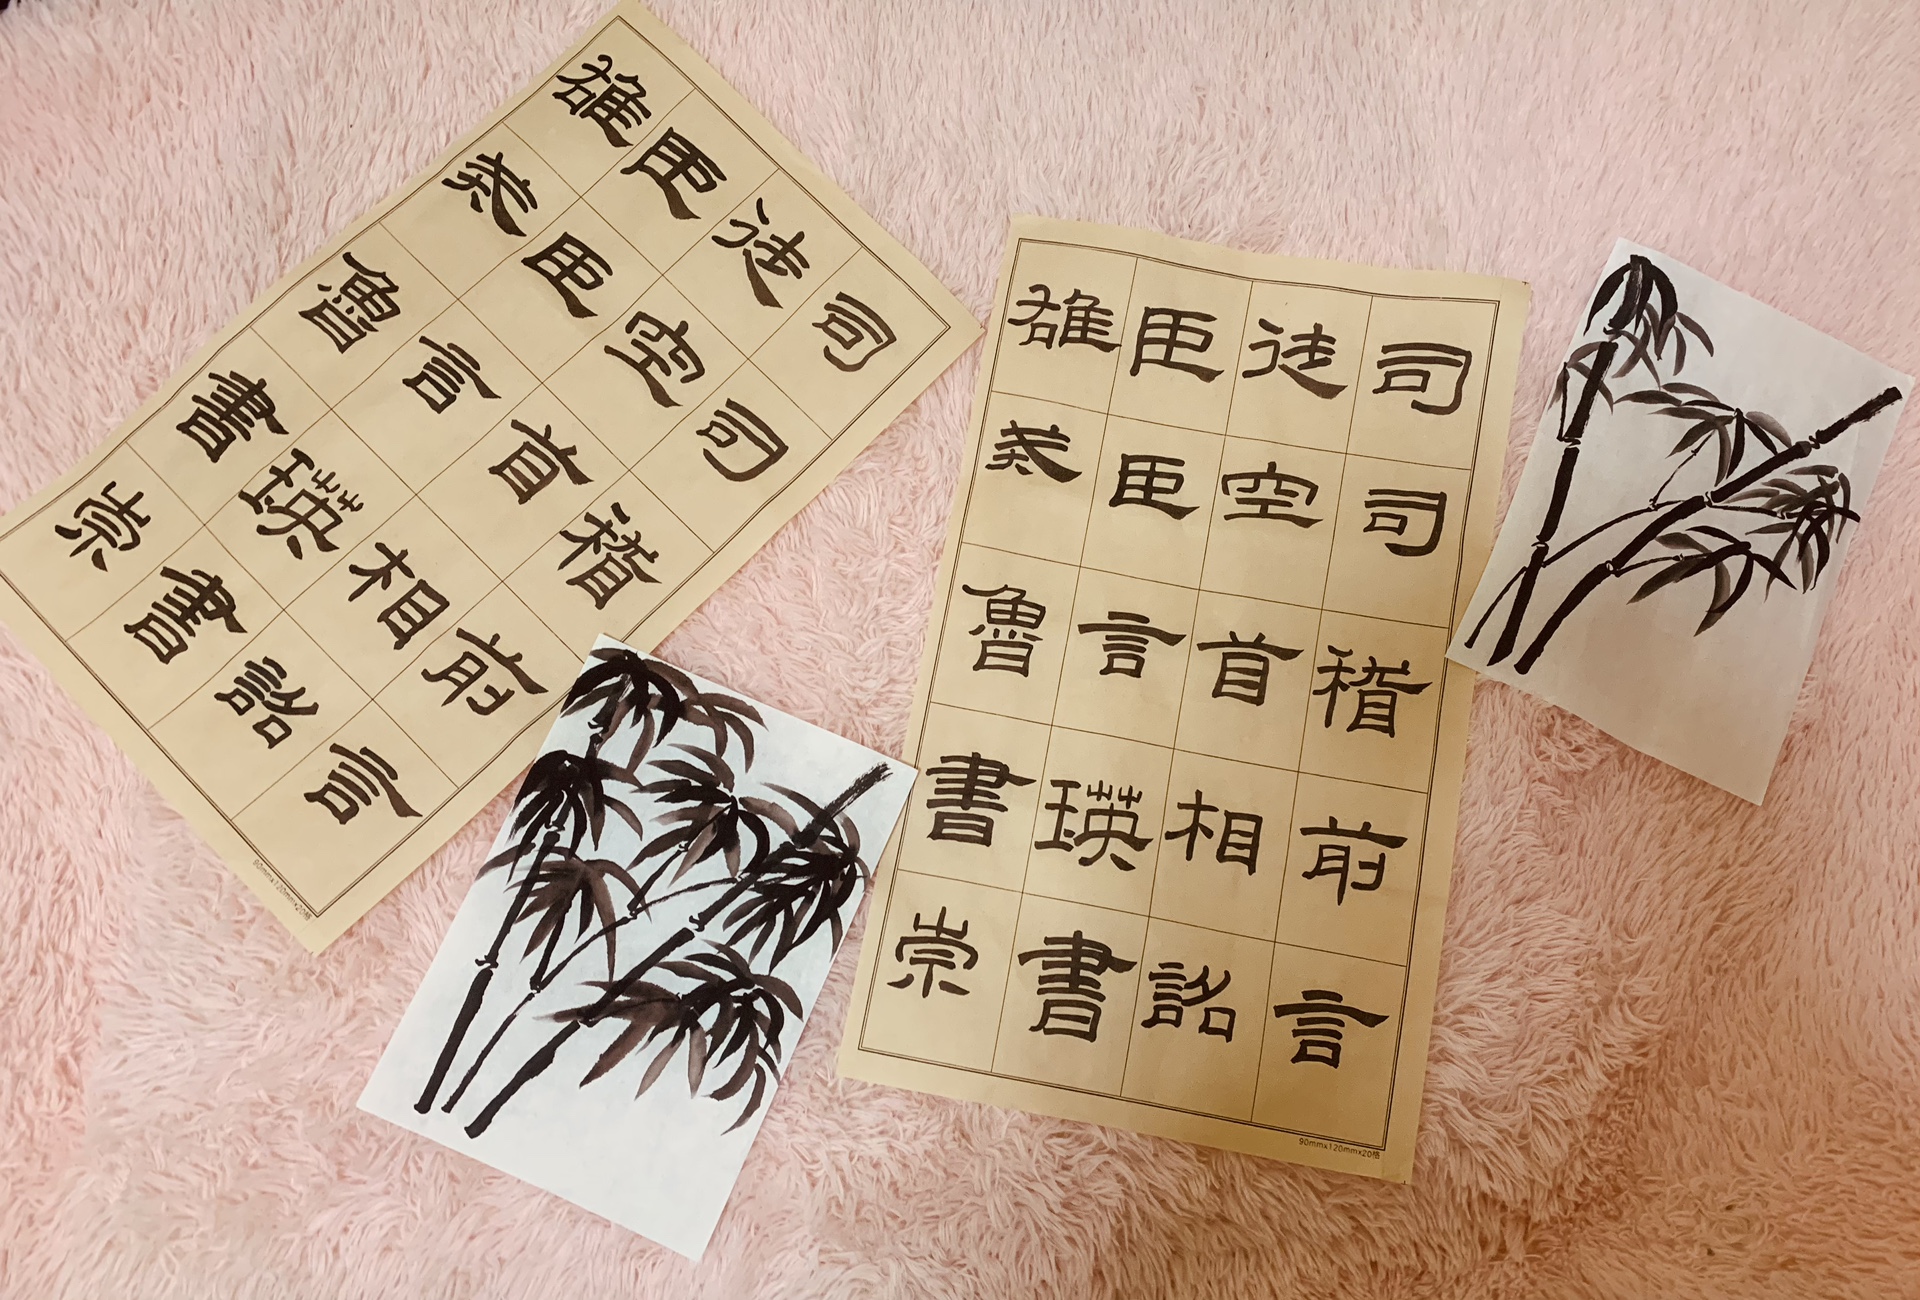 司徒臣雄
司空臣戒
稽首言魯
前相瑛書
言詔書崇
90mmx120mmx20格
司徒臣雄
司空臣戒
稽首言魯
前相瑛書
言詔書崇
90mmx120mmx20格